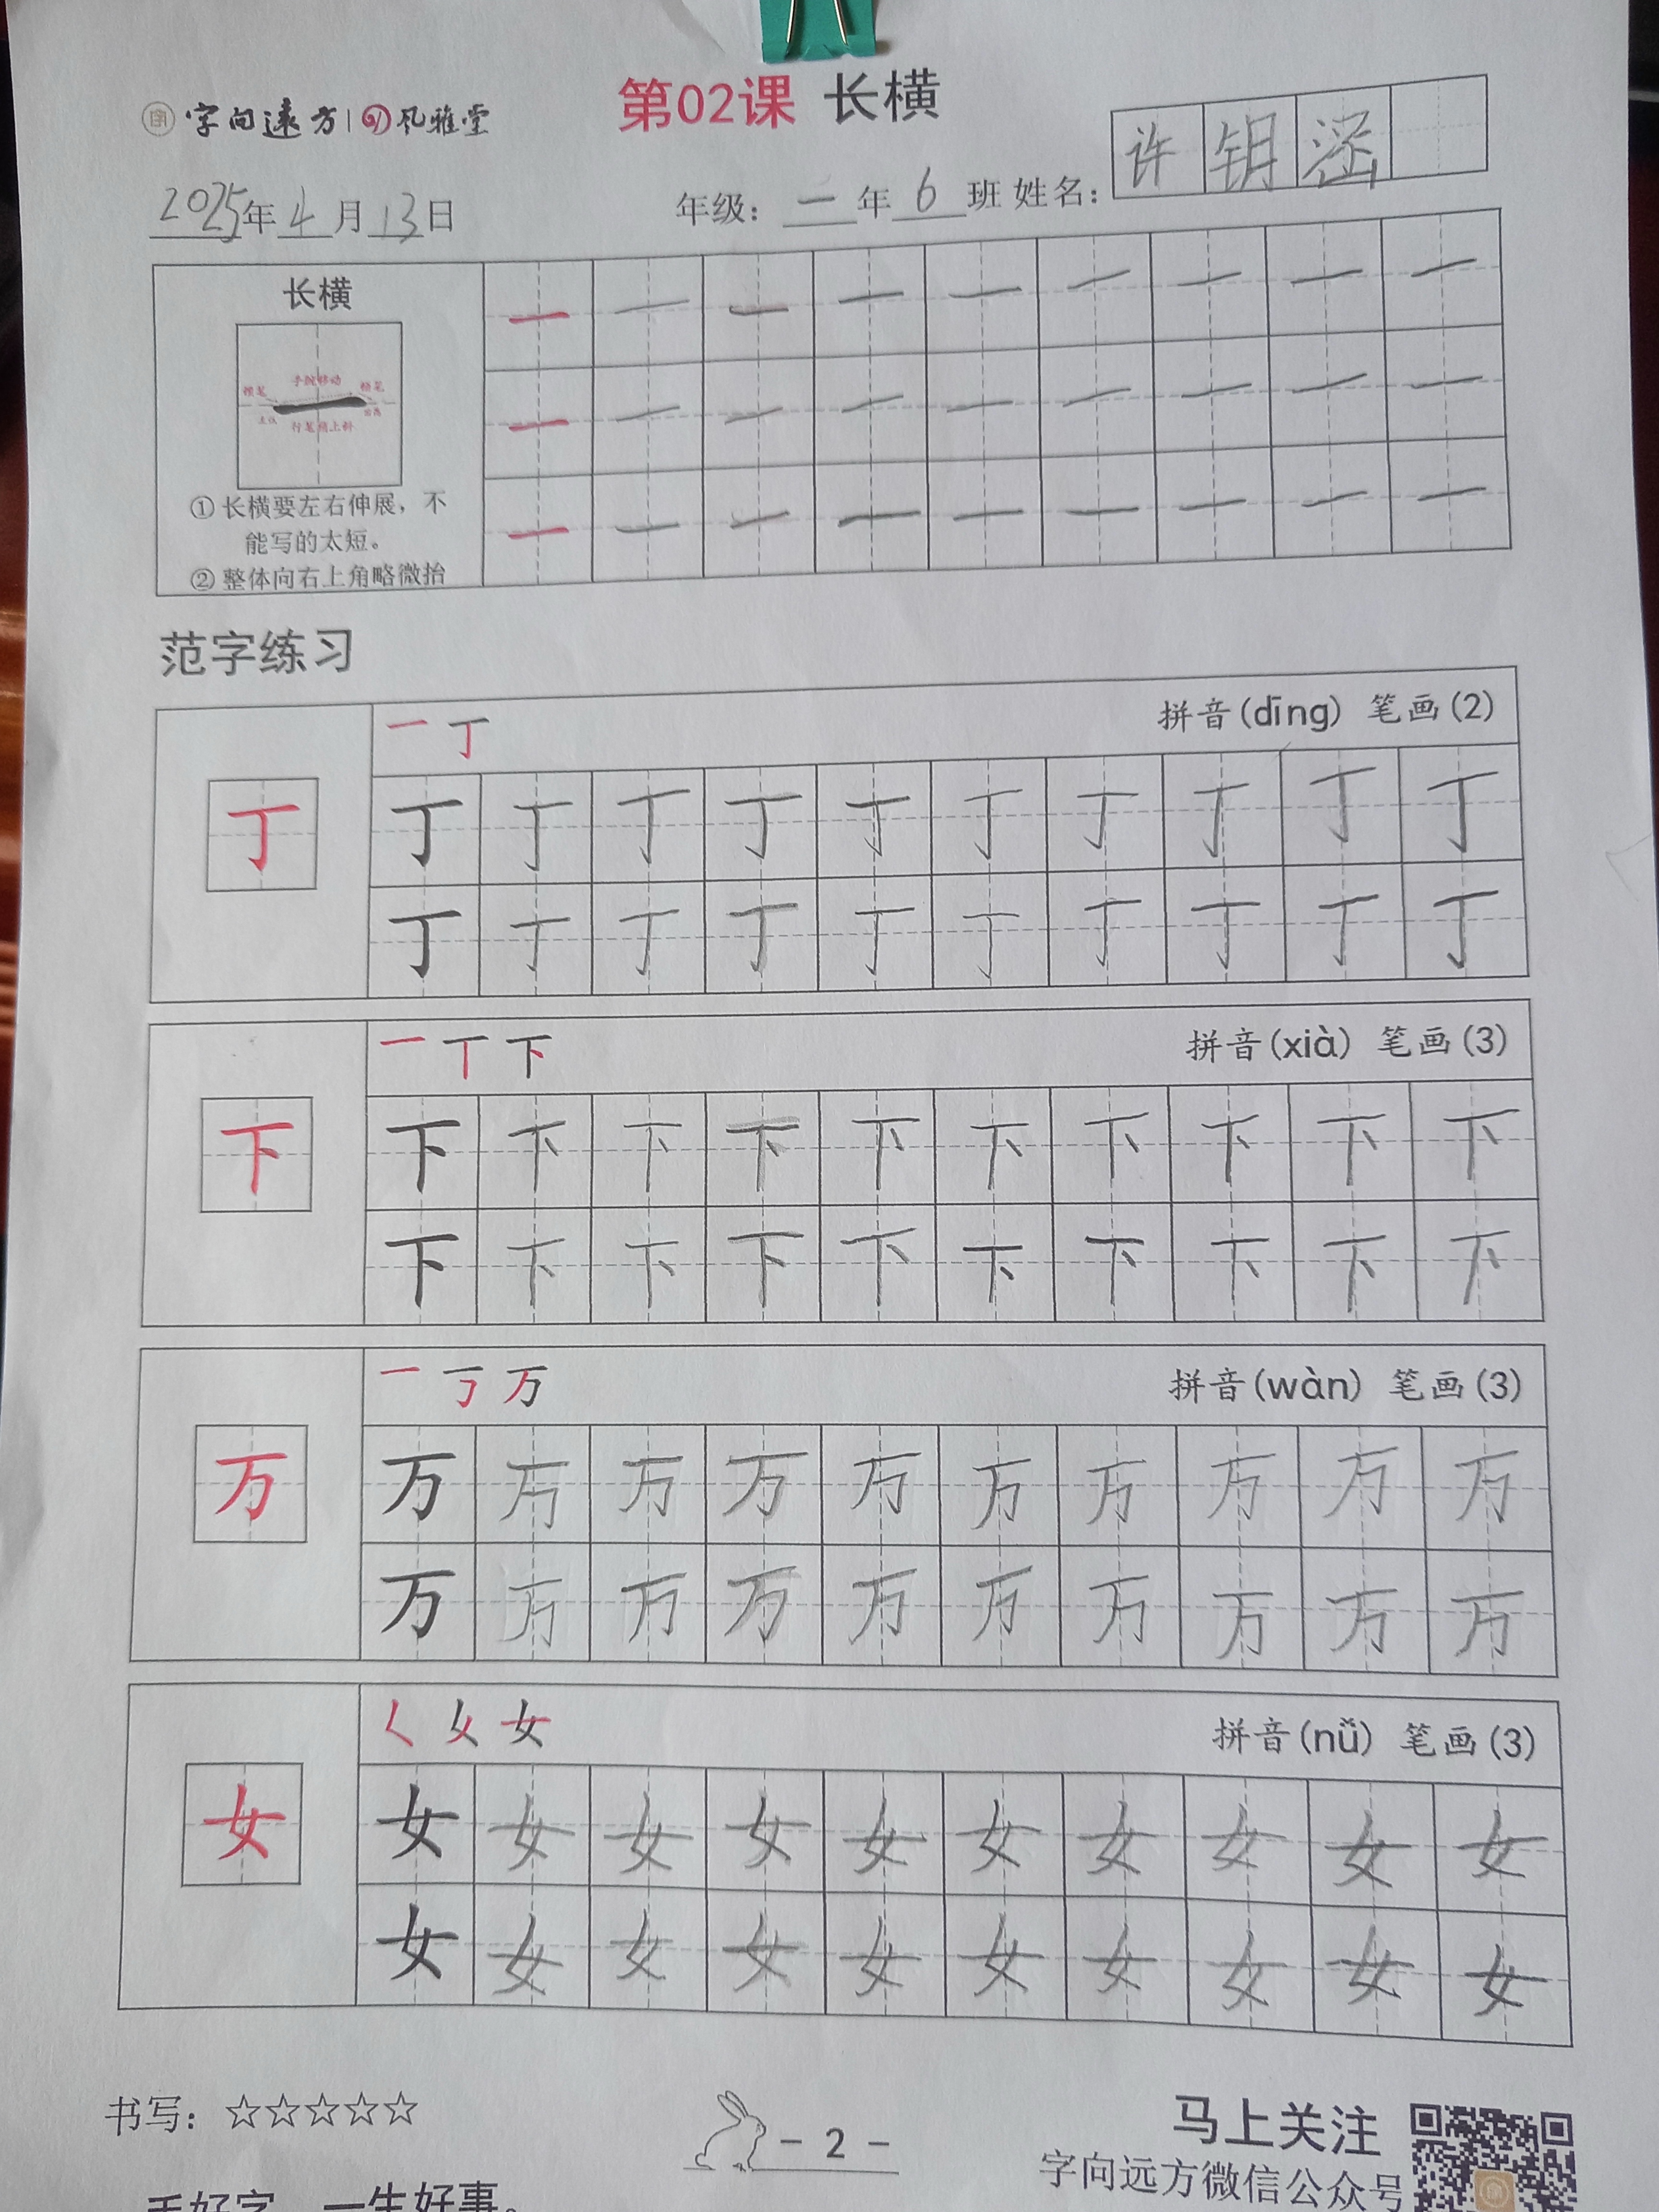 字向遠方 | 风雅堂
第02课 长横
2025年4月13日
年级：一年6班 姓名：许钥涵
长横 一 一 一 一 一 一 一 一 一
顿笔 手腕移动 顿笔
行笔稍上斜
一 一 一 一 一 一 一 一 一
① 长横要左右伸展，不
能写的太短。
② 整体向右上角略微抬
一 一 一 一 一 一 一 一 一
范字练习
一 丁 拼音(dīng) 笔画(2)
丁 丁 丁 丁 丁 丁 丁 丁 丁 丁 丁
丁 丁 丁 丁 丁 丁 丁 丁 丁 丁
一 丅 下 拼音(xià) 笔画(3)
下 下 下 下 下 下 下 下 下 下 下
下 下 下 下 下 下 下 下 下 下
一 丂 万 拼音(wàn) 笔画(3)
万 万 万 万 万 万 万 万 万 万 万
万 万 万 万 万 万 万 万 万 万
𡿨 乆 女 拼音(nǚ) 笔画(3)
女 女 女 女 女 女 女 女 女 女 女
女 女 女 女 女 女 女 女 女 女
书写：☆☆☆☆☆
- 2 -
马上关注
字向远方微信公众号
手好字，一生好事。